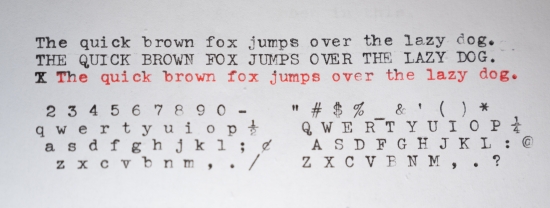 The quick brown fox jumps over the lazy dog.
THE QUICK BROWN FOX JUMPS OVER THE LAZY DOG.
X The quick brown fox jumps over the lazy dog.
2 3 4 5 6 7 8 9 0 - " # $ % _ & ' ( ) *
q w e r t y u i o p ½ Q W E R T Y U I O P ¼
a s d f g h j k l ; ¢ A S D F G H J K L : @
z x c v b n m , . / Z X C V B N M , . ?